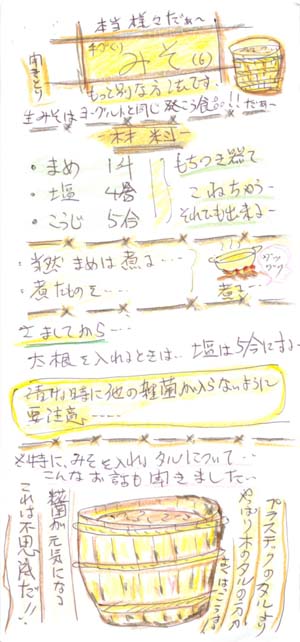 本当様々だぁ〜
聞きとり
手づくり
みそ(6)
もっと別な方法です。
生みそはヨーグルトと同じ発こう食品!! だぁ〜
材料
・まめ 1升
・塩 4合
・こうじ 5合
もちつき器で
こねちゃう〜
それでも出来る〜
・当然まめは煮る…
・煮たものを…
グツグツ
煮る〜
さましてから…
大根を入れるときは… 塩は5合にする〜
漬け時に他の雑菌が入らないように
要注意……
※特に、みそを入れるタルについて…
こんなお話も聞きました…
プラスチックのタルより
やっぱり木のタルの方が
雑菌が元気になる
これは不思議だ!!